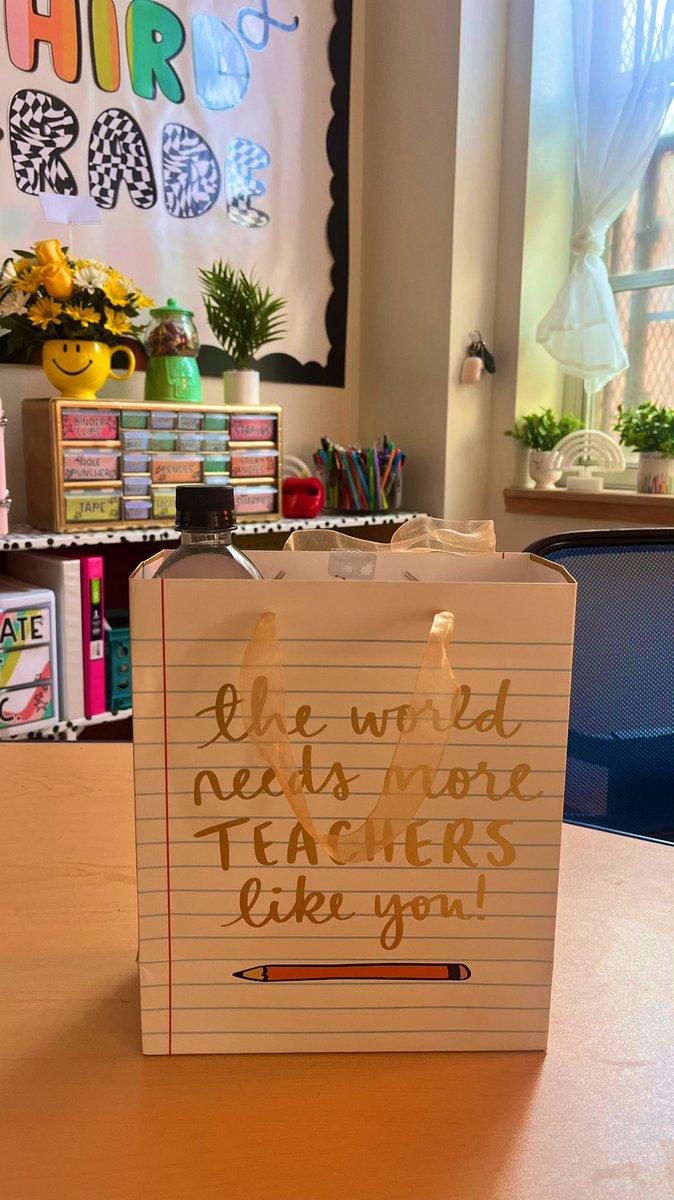 HIRD
RADE
BINDER CLIPS
STAPLES
HOLE PUNCHER
PENCILS
STICKY NOTES
TAPE
SHARPIES
ATE
C.
the world
needs more
TEACHERS
like you!